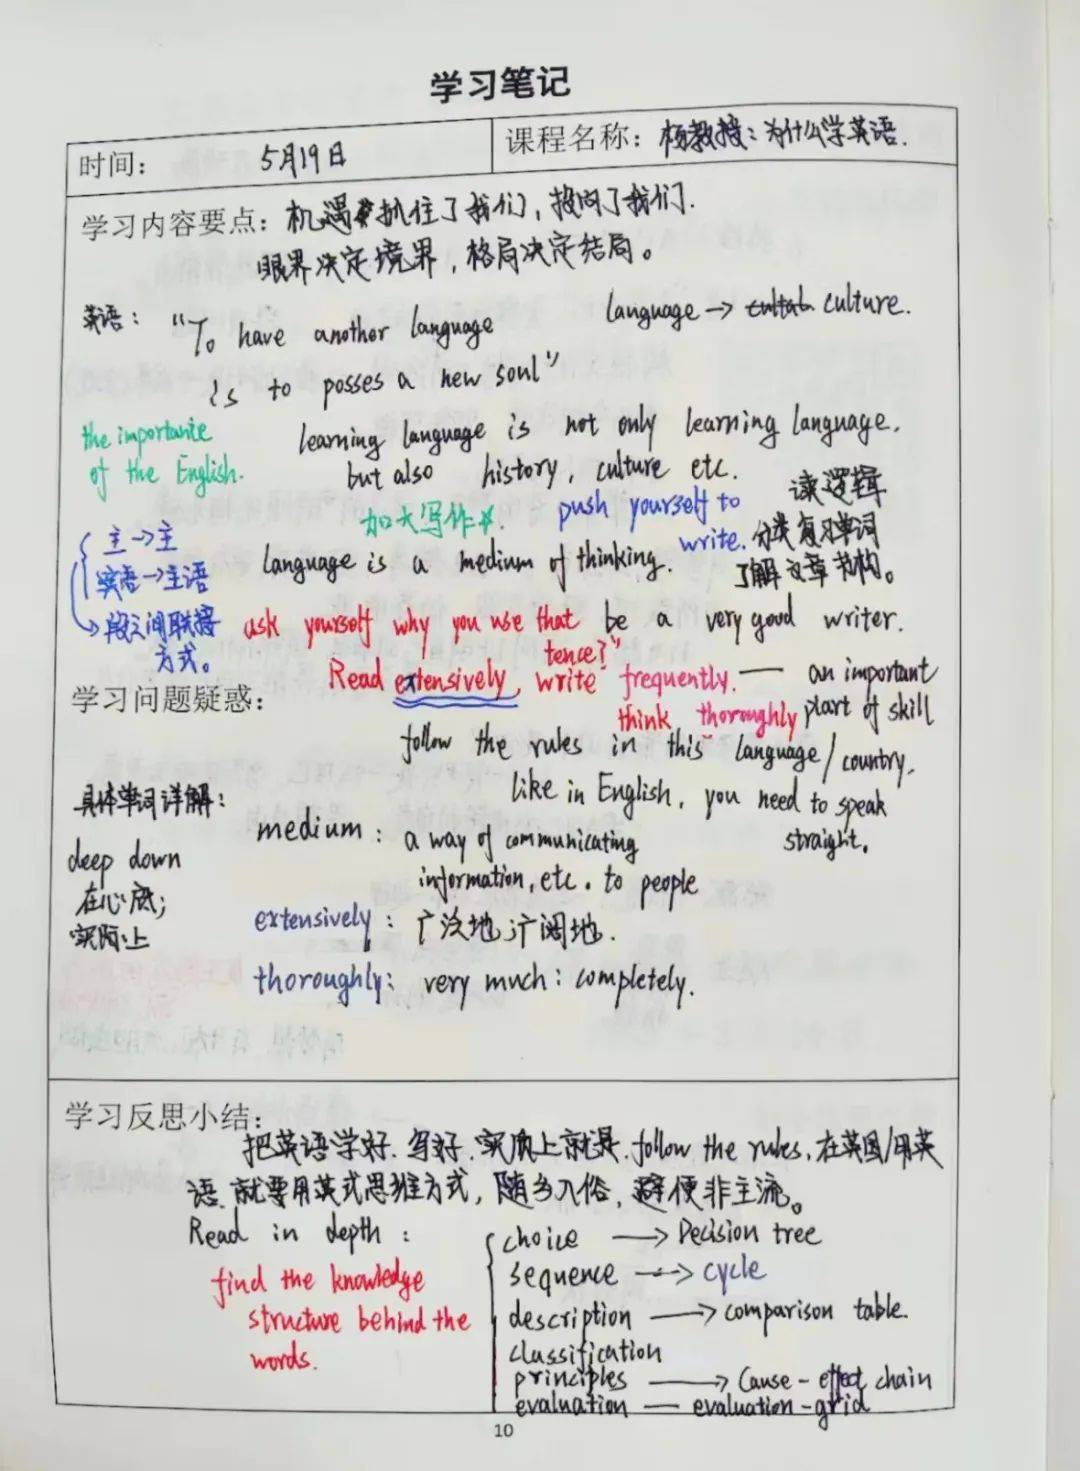 学习笔记
时间: 5月19日
课程名称: 杨教授:为什么学英语.
学习内容要点: 机遇抓住了我们, 投向了我们.
眼界决定境界, 格局决定结局。
英语: "To have another language
is to posses a new soul"
language → culture.
the importance
of the English.
learning language is not only learning language.
but also history, culture etc.
加大写作
push yourself to
write.
读逻辑
分类复习单词
了解文章结构。
主→主
宾语→主语
段之间联接
方式。
language is a medium of thinking.
ask yourself why you use that be a very good writer.
tence?"
Read extensively, write frequently. — an important
think thoroughly part of skill
学习问题疑惑:
follow the rules in this language/country,
like in English, you need to speak
straight.
具体单词详解:
deep down
在心底;
实际上
medium: a way of communicating
information, etc. to people
extensively: 广泛地 广阔地.
thoroughly: very much: completely.
学习反思小结:
把英语学好. 写好. 实质上就是 follow the rules, 在英国/用英
语. 就要用英式思维方式, 随乡入俗, 便非主流。
Read in depth:
find the knowledge
structure behind the
words.
choice → Decision tree
sequence → cycle
description → comparison table.
classification
principles → Cause-effect chain
evaluation — evaluation-grid
10